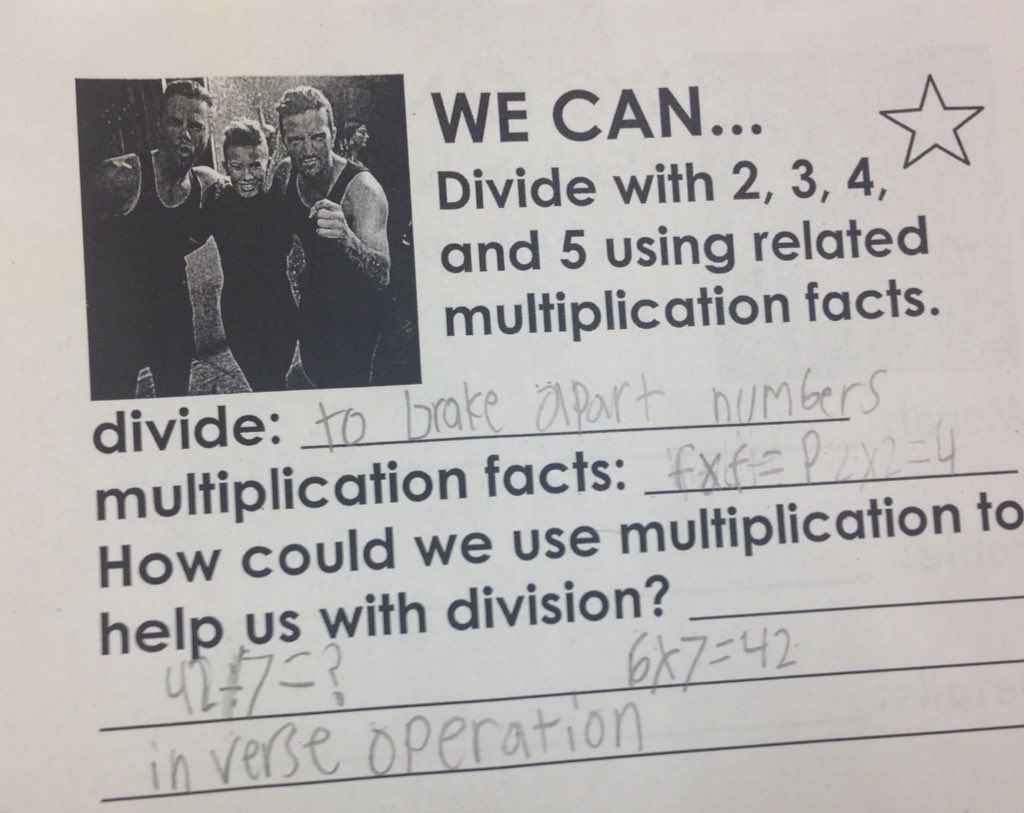 WE CAN...
Divide with 2, 3, 4,
and 5 using related
multiplication facts.
divide: to brake apart numbers
multiplication facts: fxf=P 2x2=4
How could we use multiplication to
help us with division?
42÷7=? 6x7=42
inverse operation